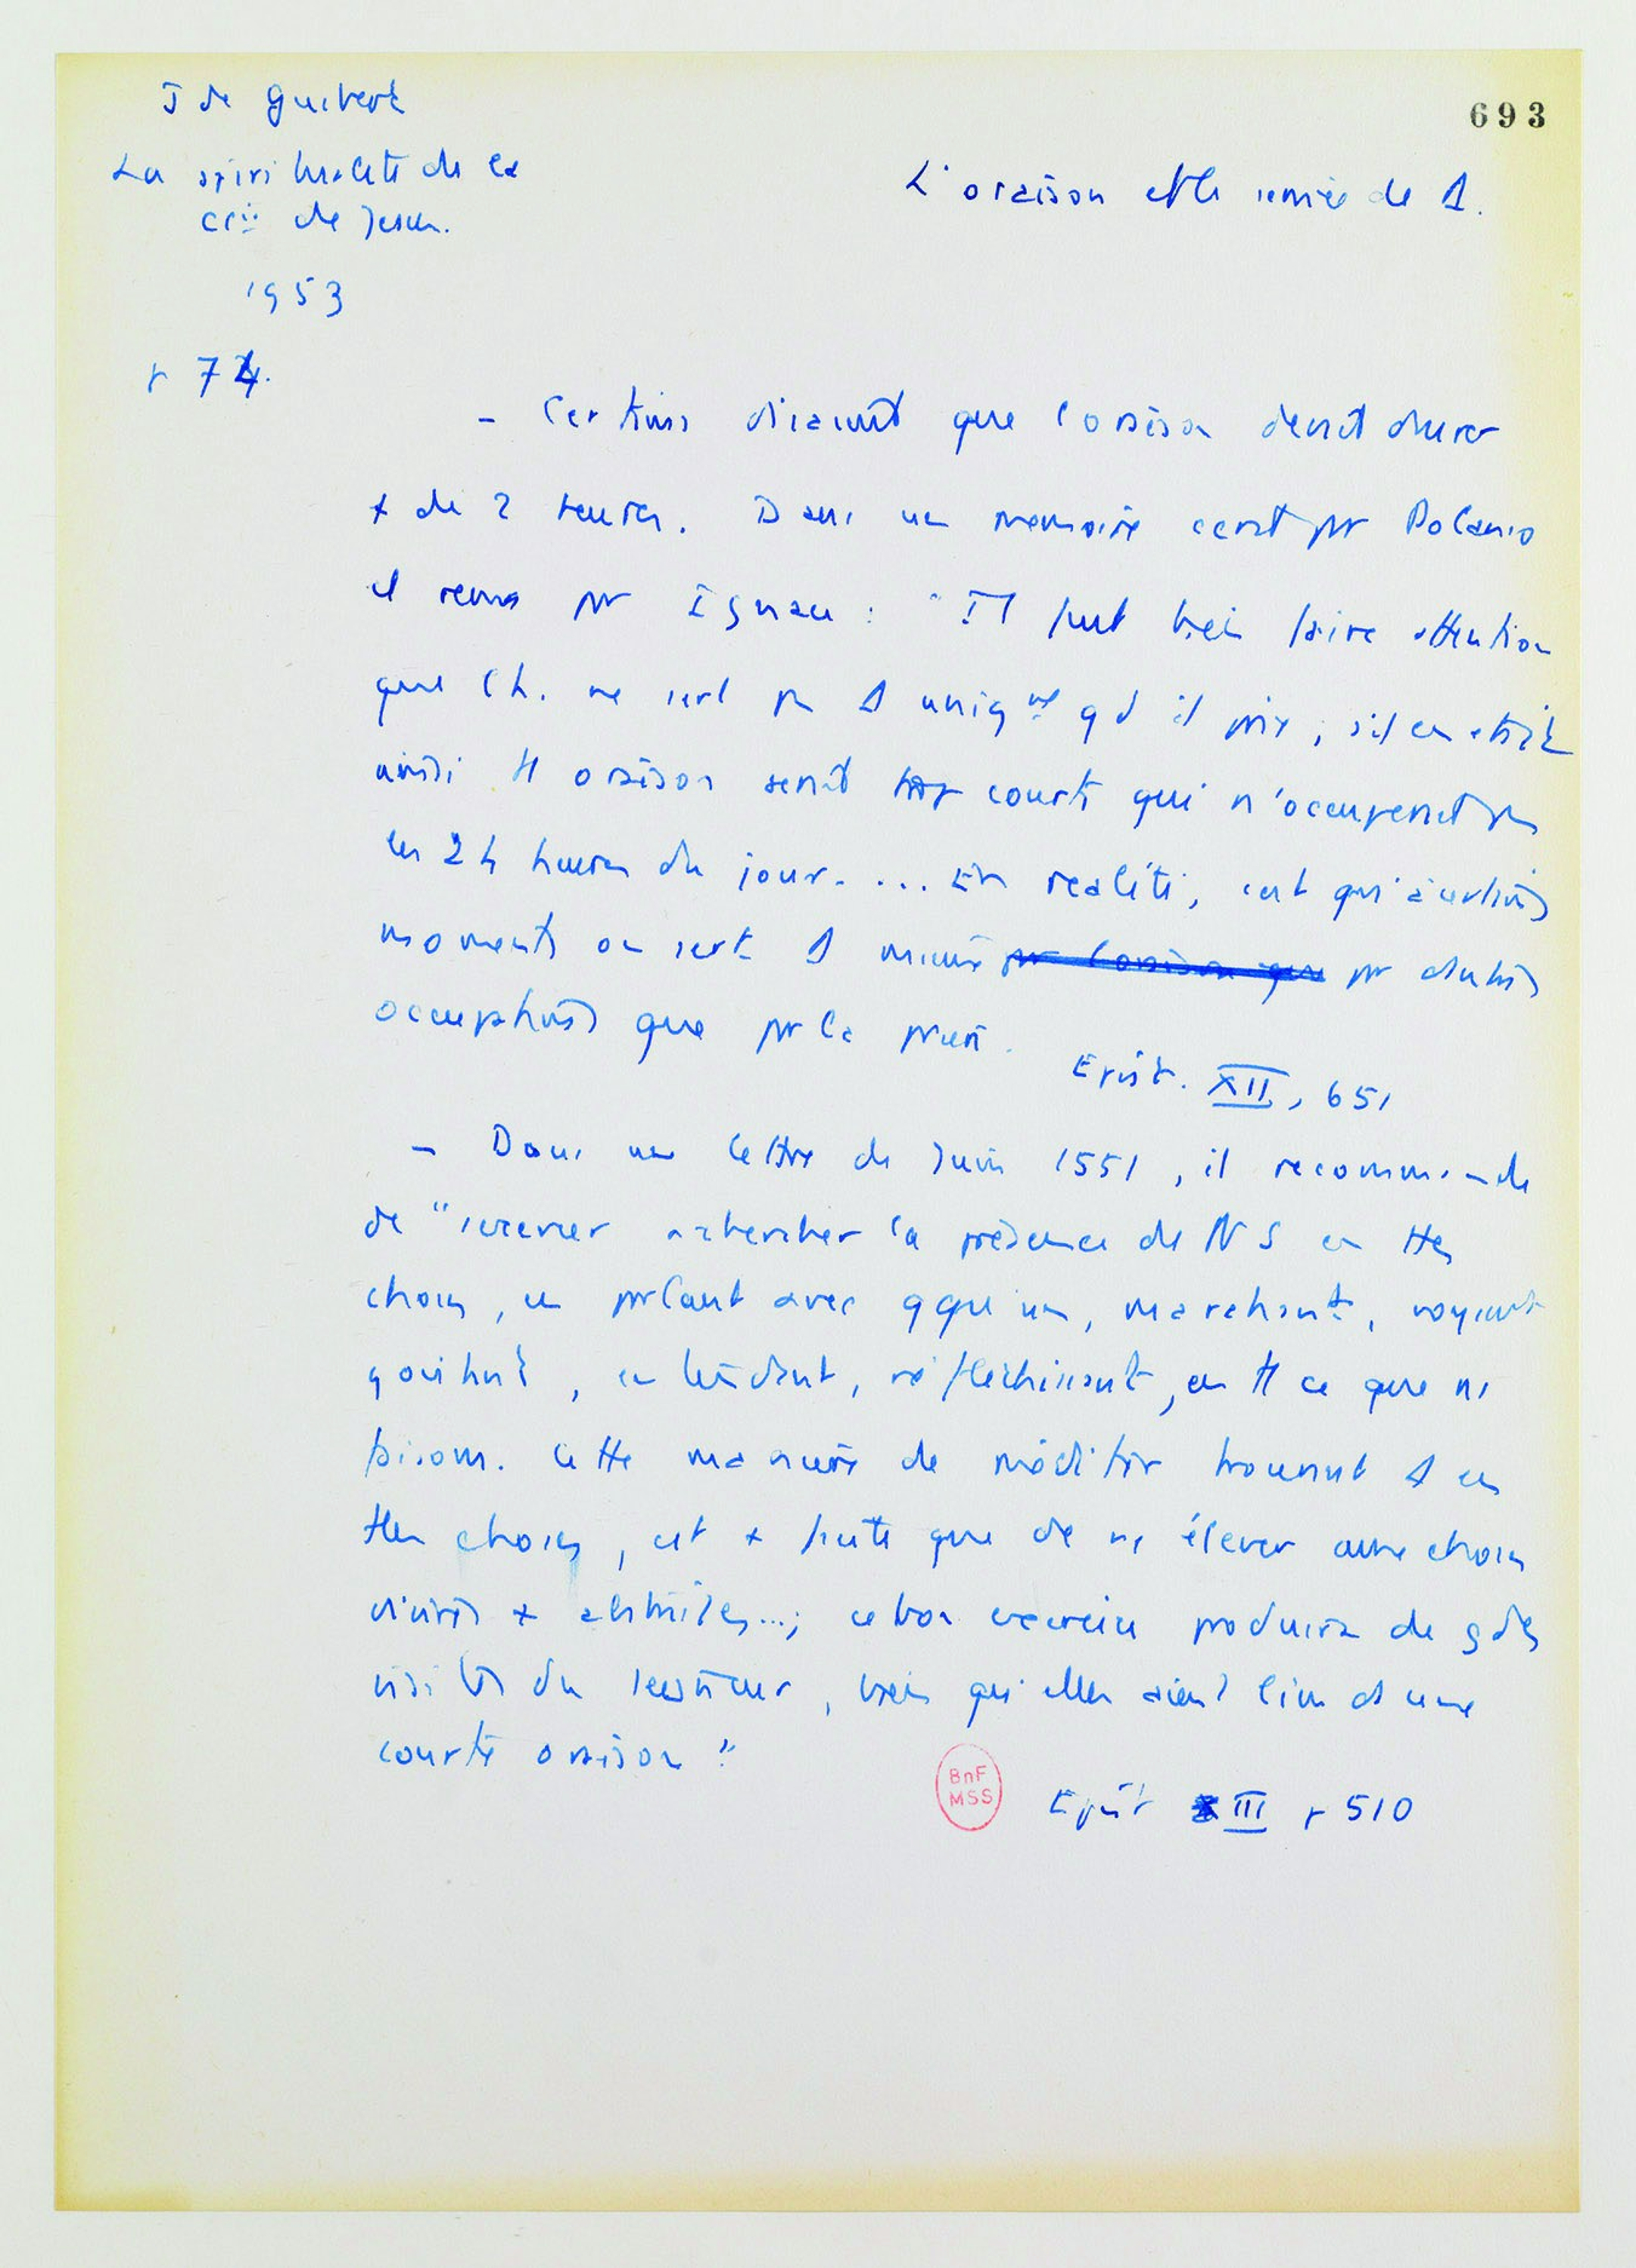 J de Guibert
693
La spiritualité de la
Cie de Jesus.
1953
L'oraison et le service de D.
p 74.
– Certains disaient que l'oraison devrait durer
+ de 2 heures. Dans un memoire ecrit par Polanco
et revu par Ignace : "Il faut bien faire attention
que l'h. ne sert pas D uniqmt qd il prie ; s'il en etait
ainsi tt oraison serait trop courte qui n'occuperait pas
les 24 heures du jour. ... En realité, c'est qu'à certains
moments on sert D mieux par l'oraison que par d'autres
occupations que par la prière.
Epist. XII, 651
– Dans une lettre de Juin 1551, il recommande
de "s'exercer à chercher la présence de NS en ttes
choses, en parlant avec qqu'un, marchant, voyant
goûtant, entendant, réfléchissant, en tt ce que ns
faisons. Cette manière de méditer trouvant D en
ttes choses, est + facile que de ns élever aux choses
divines + abstraites...; ce bon exercice produira de gdes
visites du Seigneur, bien qu'elles aient lieu ds une
courte oraison"
BnF
MSS
Epist III p 510